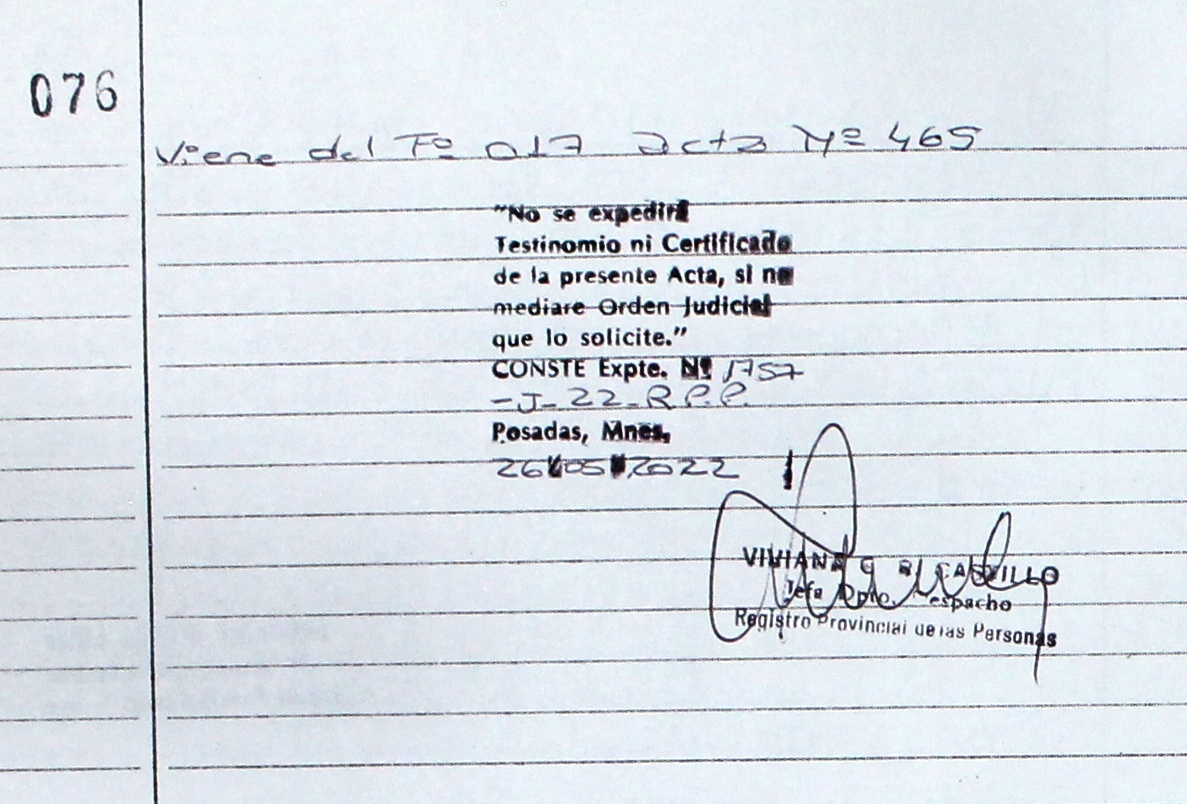 076
Viene del Fº 017 acta Nº 465
"No se expedirá
Testinomio ni Certificado
de la presente Acta, si no
mediare Orden Judicial
que lo solicite."
CONSTE Expte. Nº 1757
-J-22-R.P.P.
Posadas, Mnes,
26 05 2022
VIVIANA G CASTILLO
Jefa Dpto. espacho
Registro Provincial de las Personas